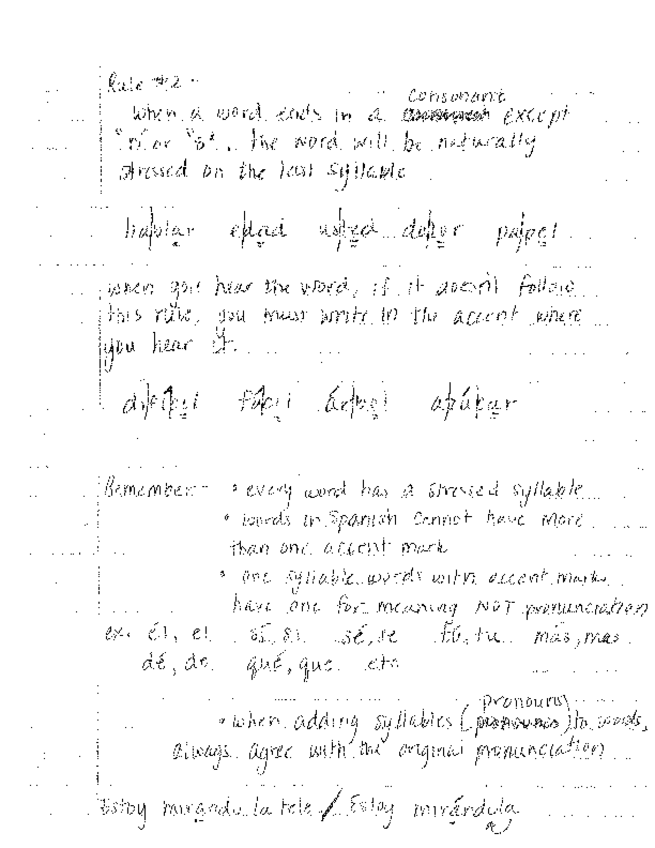 Rule #2 -
consonant
when a word ends in a except
"n" or "s"... the word will be naturally
stressed on the last syllable
hablar edad usted dolor papel
when you hear the word, if it doesn't follow
this rule, you must write in the accent where
you hear it.
difícil fácil árbol azúcar
Remember - • every word has a stressed syllable
• words in Spanish cannot have more
than one accent mark
• one syllable words with accent marks
have one for meaning NOT pronunciation
ex. él, el sí, si sé, se tú, tu más, mas
dé, de qué, que etc
pronouns
• when adding syllables ( ) to words,
always agree with the original pronunciation
Estoy mirando la tele / Estoy mirándola